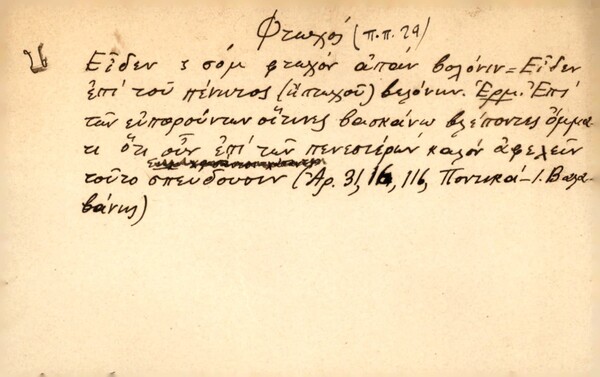 Φτωχός (π.π. 29)
Εἶδεν ς σόμ φτωχόν ἀπάν βολόνιν = Εἶδεν
ἐπί τοῦ πένητος (πτωχοῦ) βελόνην. Ἑρμ. Ἐπί
τῶν εὐπορούντων οἵτινες βασκάνω βλέποντες ὄμμα-
τι ὅτι οὖν ἐπί τῶν πενεστέρων καλόν ἀφελεῖν
τοῦτο σπεύδουσιν (Ἀρ. 31, 16, 116, Ποντικά - Ι. Βαλα-
βάνης)